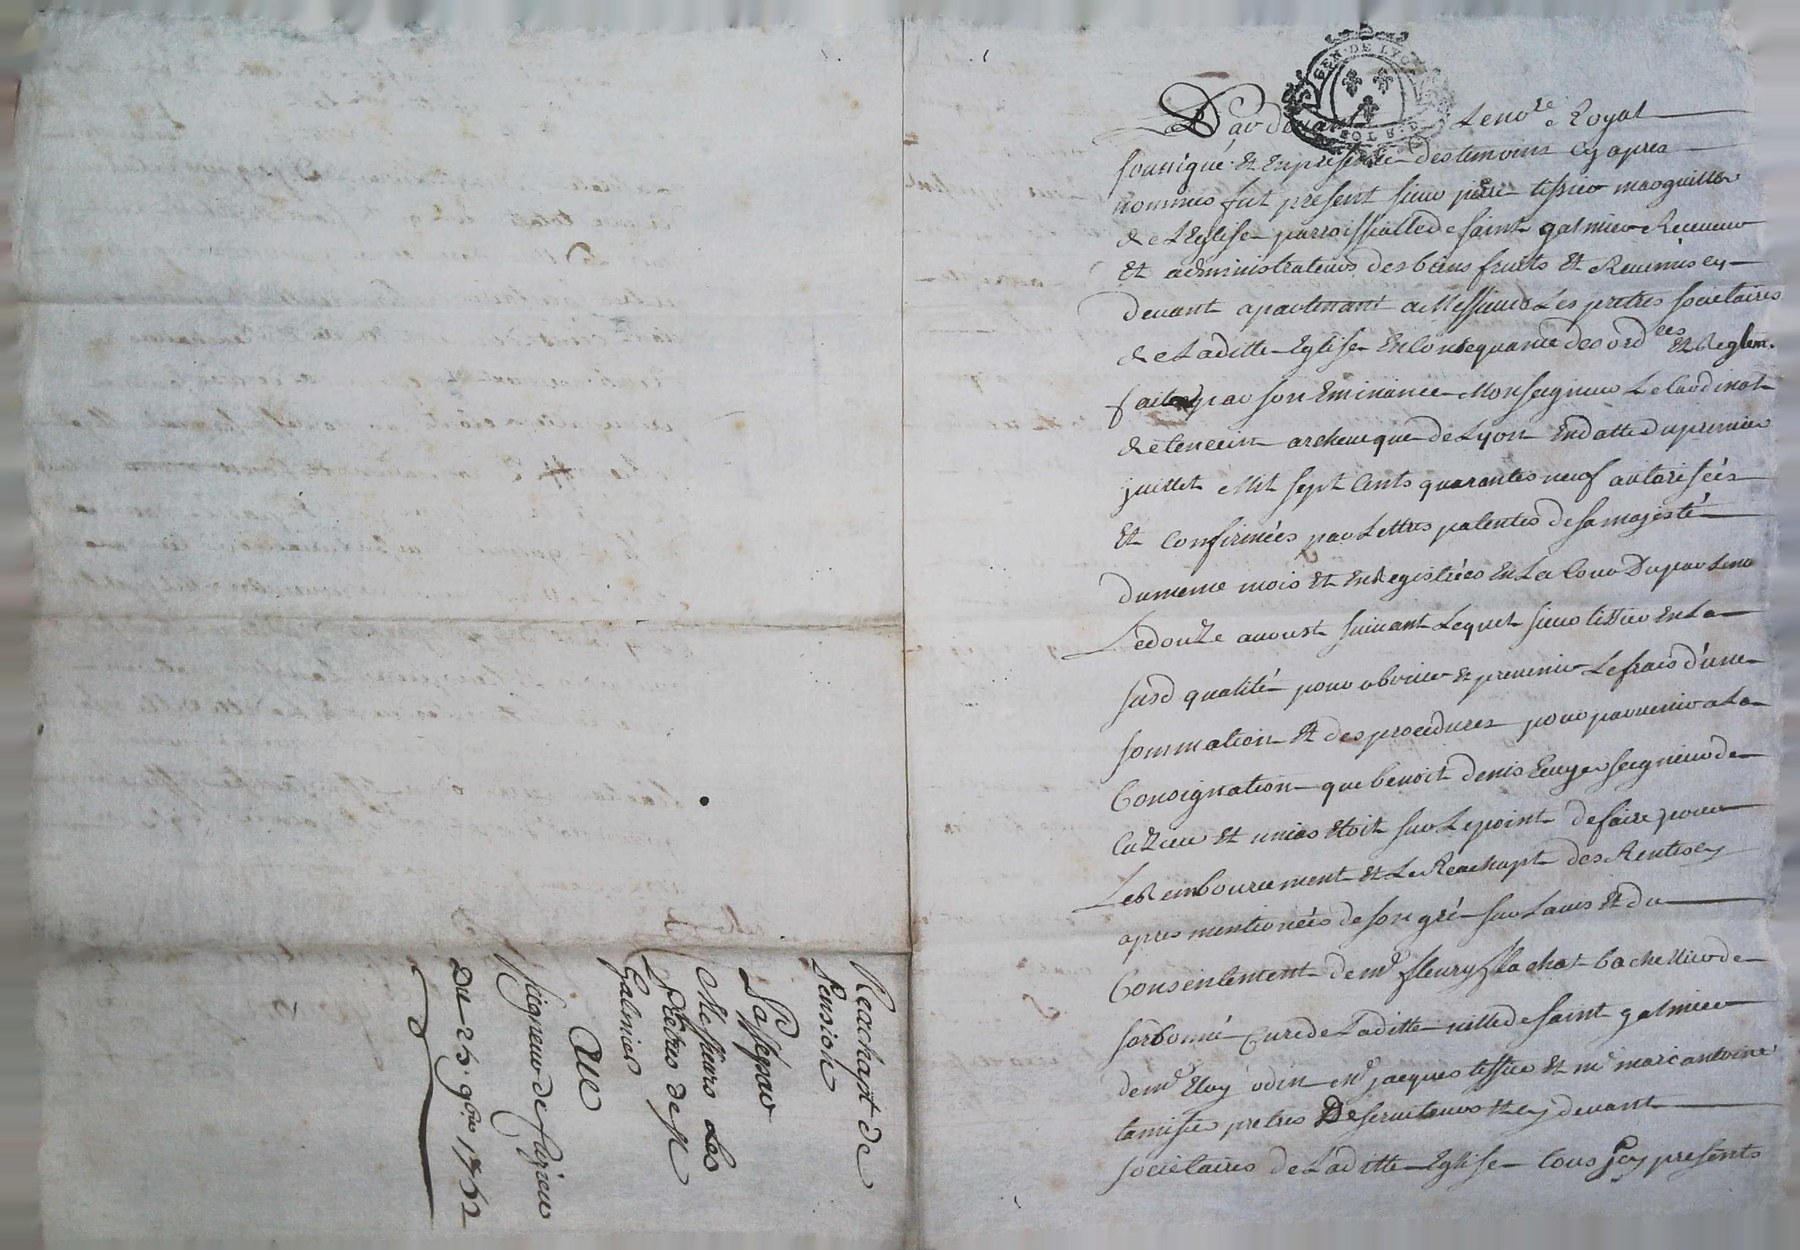 GEN. DE LYON
SOL S. D.
Pardevant Le nore Royal
soussigné et En presence des temoins cy apres
nommés fut present sieur pierre tissier marguillier
de L'Eglise parroissialle de saint galmier Receveur
Et administrateurs des biens fruits Et Revenus cy
devant apartenant a Messieurs Les pretres societaires
de Laditte Eglise En Consequance des ordces Et Reglem.
faits par son Eminance Monseigneur Le Cardinal
de tencein archeveque de Lyon En datte du premier
juillet Mil sept Cents quarantes neuf autorisées
Et Confirmées par Lettres patentes de sa majesté
du meme mois Et Enregistrées En La Cour Du parlem
Le douze avoust suivant Lequel sieur tissier En La
susd qualité pour obvier Et prevenir Le frais d'une
sommation Et des procedures pour parvenir a La
Consignation que benoit denis Ecuyer seigneur de
Cuzieu Et unias Etoit sur Le point de faire pour
Le Remboursement Et Le Reachapt des Rentes cy
apres mentionées de son gré sur L'avis Et du
Consentement de mre fleury flachat bachellier de
sorbonne Curé de Laditte ville de saint galmier
de mre Eloy odin mre jacques tissier Et mre marc antoine
tamisier pretres Deserviteurs Et cy devant
societaires de Laditte Eglise tous icy presents
Reachapt de
Pension
Passé par
Messieurs Les
Pretres de St
Galmier
Au
Seigneur de Cuzieu
Du 25 9bre 1752